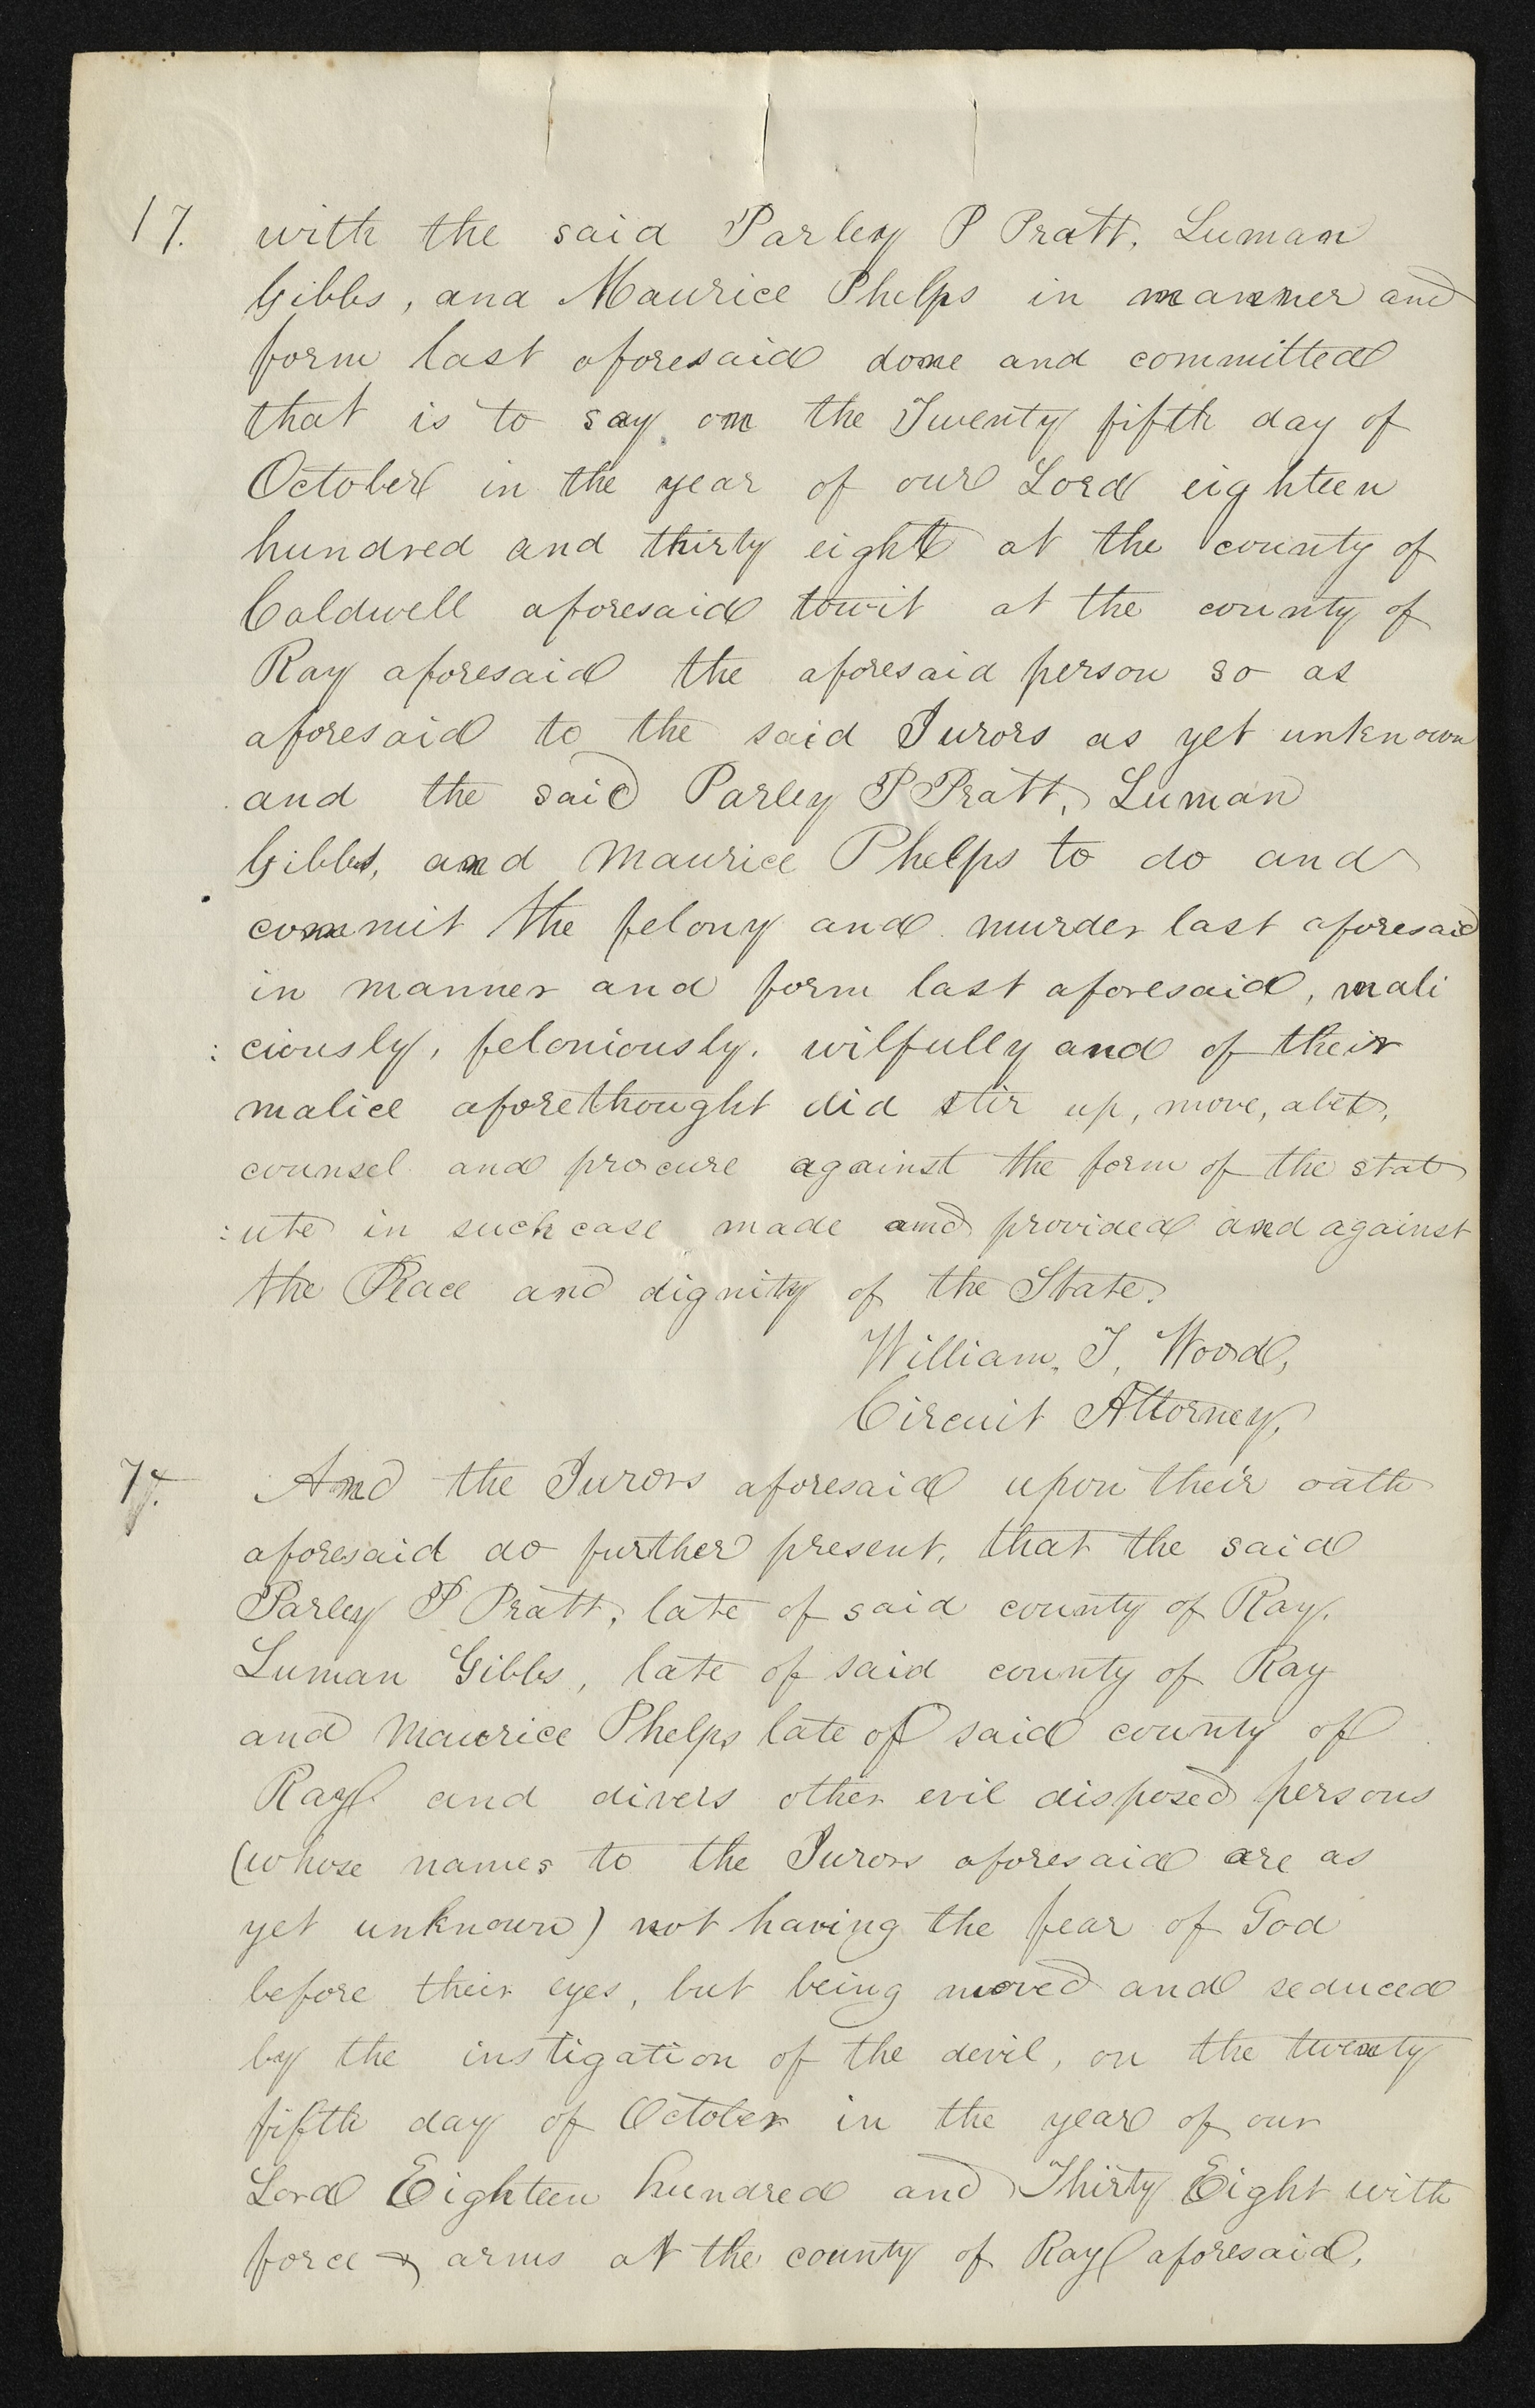 17. with the said Parley P Pratt, Luman
Gibbs, and Maurice Phelps in manner and
form last aforesaid done and committed
that is to say on the Twenty fifth day of
October in the year of our Lord eighteen
hundred and thirty eight at the county of
Caldwell aforesaid towit at the county of
Ray aforesaid the aforesaid person so as
aforesaid to the said Jurors as yet unknown
and the said Parley P Pratt, Luman
Gibbs, and Maurice Phelps to do and
commit the felony and murder last aforesaid
in manner and form last aforesaid, mali
: ciously, feloniously, wilfully and of their
malice aforethought did stir up, move, abet,
counsel and procure against the form of the stat
: ute in such case made and provided and against
the Peace and dignity of the State.
William, T, Wood,
Circuit Attorney,
7. And the Jurors aforesaid upon their oath
aforesaid do further present, that the said
Parley P Pratt, late of said county of Ray,
Luman Gibbs, late of said county of Ray
and Maurice Phelps late of said county of
Ray and divers other evil disposed persons
(whose names to the Jurors aforesaid are as
yet unknown) not having the fear of God
before their eyes, but being moved and seduced
by the instigation of the devil, on the twenty
fifth day of October in the year of our
Lord Eighteen hundred and Thirty Eight with
force & arms at the county of Ray aforesaid,